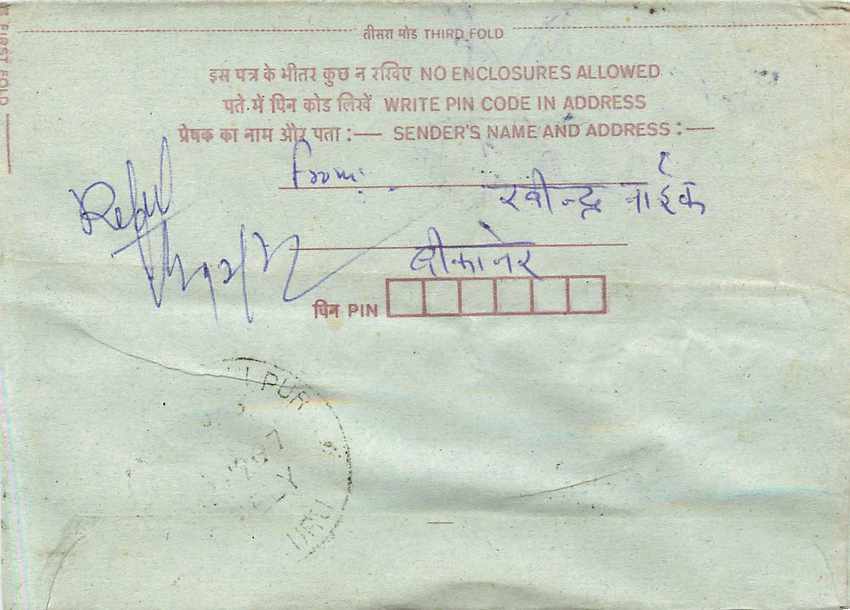 तीसरा मोड THIRD FOLD
FIRST FOLD
इस पत्र के भीतर कुछ न रखिए NO ENCLOSURES ALLOWED
पते में पिन कोड लिखें WRITE PIN CODE IN ADDRESS
प्रेषक का नाम और पता :— SENDER'S NAME AND ADDRESS :—
From:
रवीन्द्र नाईक
बीकानेर
पिन PIN
PUR